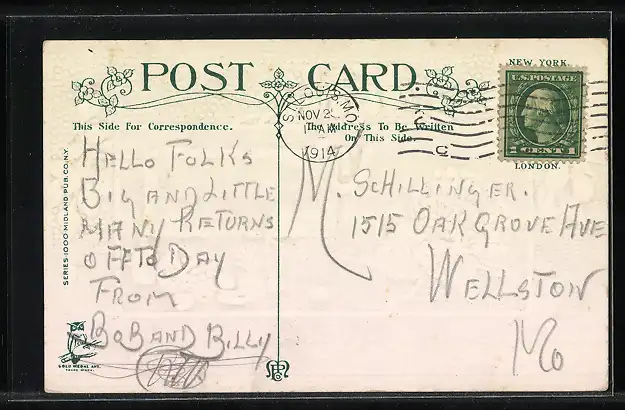 POST CARD.
NEW YORK.
U.S. POSTAGE
1 CENT 1
LONDON.
ST. LOUIS, MO.
NOV 2
AM
1914
This Side For Correspondence.
The Address To Be Written
On This Side.
HELLO FOLKS
BIG AND LITTLE
MANY RETURNS
OFF TO DAY
FROM
BOB AND BILLY
M. SCHILLINGER.
1515 OAK GROVE AVE
WELLSTON
MO
SERIES 1000 MIDLAND PUB. CO. N.Y.
GOLD MEDAL ART.
TRADE MARK.